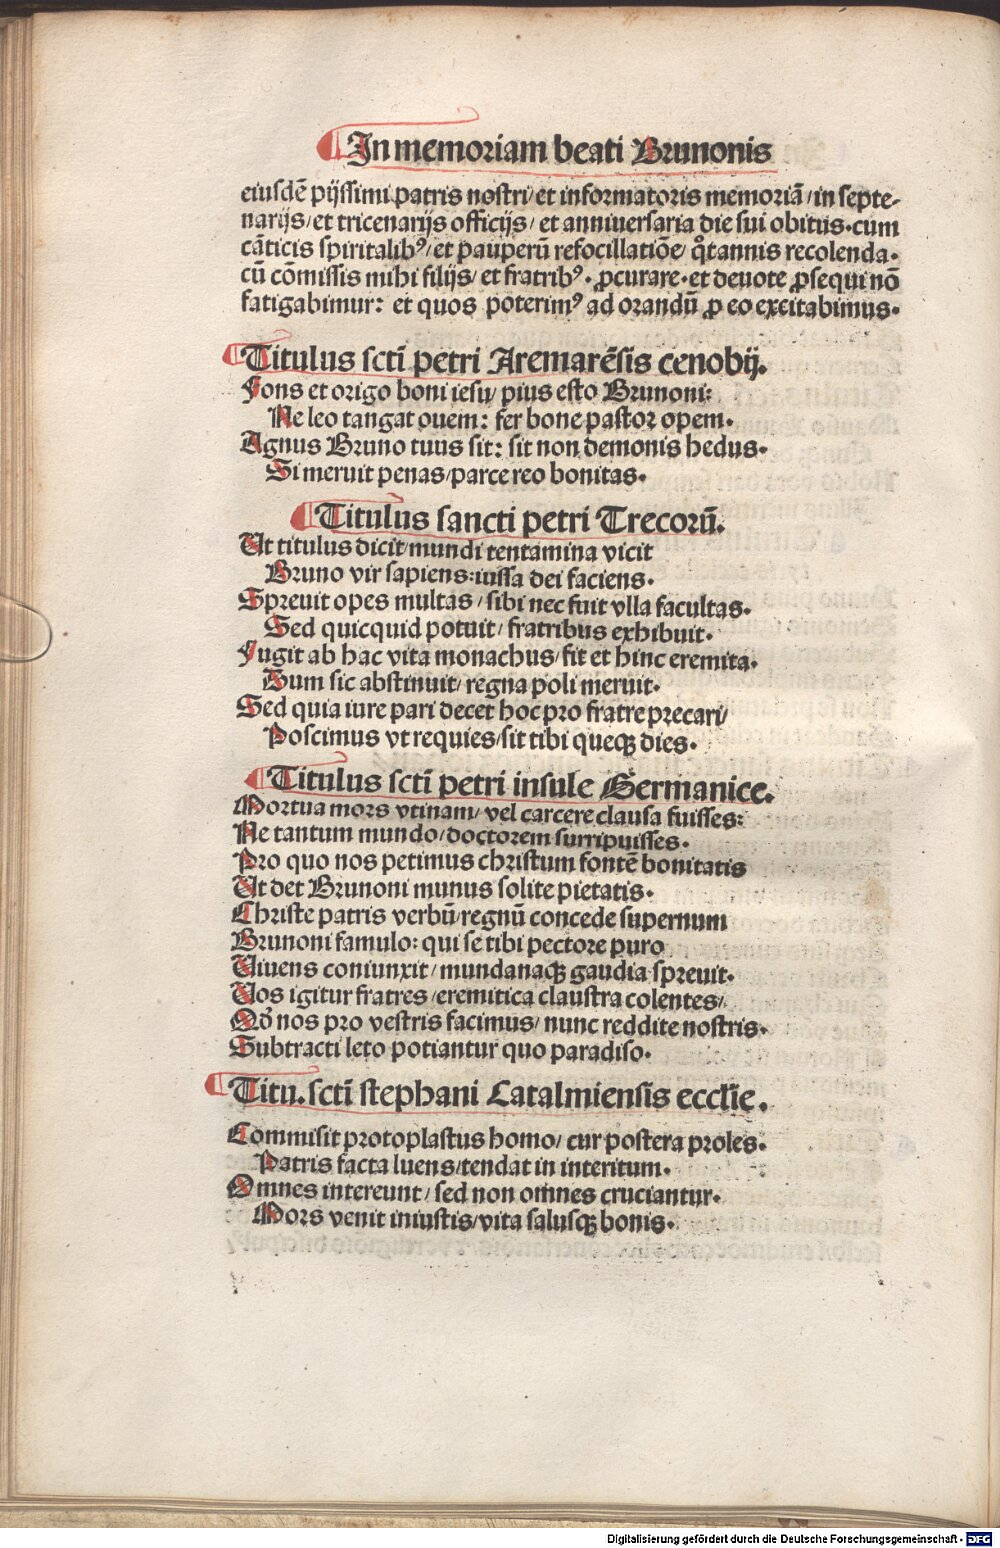 In memoriam beati Brunonis
eiusdē pijssimi patris nostri/ et informatoris memoriā/ in septe-
narijs/ et tricenarijs officijs/ et anniuersaria die sui obitus. cum
cāticis spiritalibꝰ/ et pauperū refocillatiōe/ qͦtannis recolenda.
cū cōmissis mihi filijs/ et fratribꝰ. ꝓcurare. et deuote ꝓsequi nō
fatigabimur: et quos poterimꝰ ad orandū ꝓ eo excitabimus.
Titulus scti petri Aremarēsis cenobij.
Fons et origo boni iesu/ pius esto Brunoni:
Ne leo tangat ouem: fer bone pastor opem.
Agnus Bruno tuus sit: sit non demonis hedus.
Si meruit penas/ parce reo bonitas.
Titulus sancti petri Trecorū.
Ut titulus dicit/ mundi tentamina vicit
Bruno vir sapiens: iussa dei faciens.
Spreuit opes multas/ sibi nec fuit vlla facultas.
Sed quicquid potuit/ fratribus exhibuit.
Fugit ab hac vita monachus/ fit et hinc eremita.
Dum sic abstinuit/ regna poli meruit.
Sed quia iure pari decet hoc pro fratre precari/
Poscimus vt requies/ sit tibi queqꝫ dies.
Titulus scti petri insule Germanice.
Mortua mors vtinam/ vel carcere clausa fuisses:
Ne tantum mundo/ doctorem surripuisses.
Pro quo nos petimus christum fontē bonitatis
Ut det Brunoni munus solite pietatis.
Christe patris verbū/ regnū concede supernum
Brunoni famulo: qui se tibi pectore puro
Viuens coniunxit/ mundanaqꝫ gaudia spreuit.
Vos igitur fratres/ eremitica claustra colentes/
Qđ nos pro vestris facimus/ nunc reddite nostris.
Subtracti leto potiantur quo paradiso.
Titu. scti stephani Catalmiensis ecclie.
Commisit protoplastus homo/ cur postera proles.
Patris facta luens/ tendat in interitum.
Omnes intereunt/ sed non omnes cruciantur.
Mors venit iniustis/ vita salusqꝫ bonis.
Digitalisierung gefördert durch die Deutsche Forschungsgemeinschaft - DFG